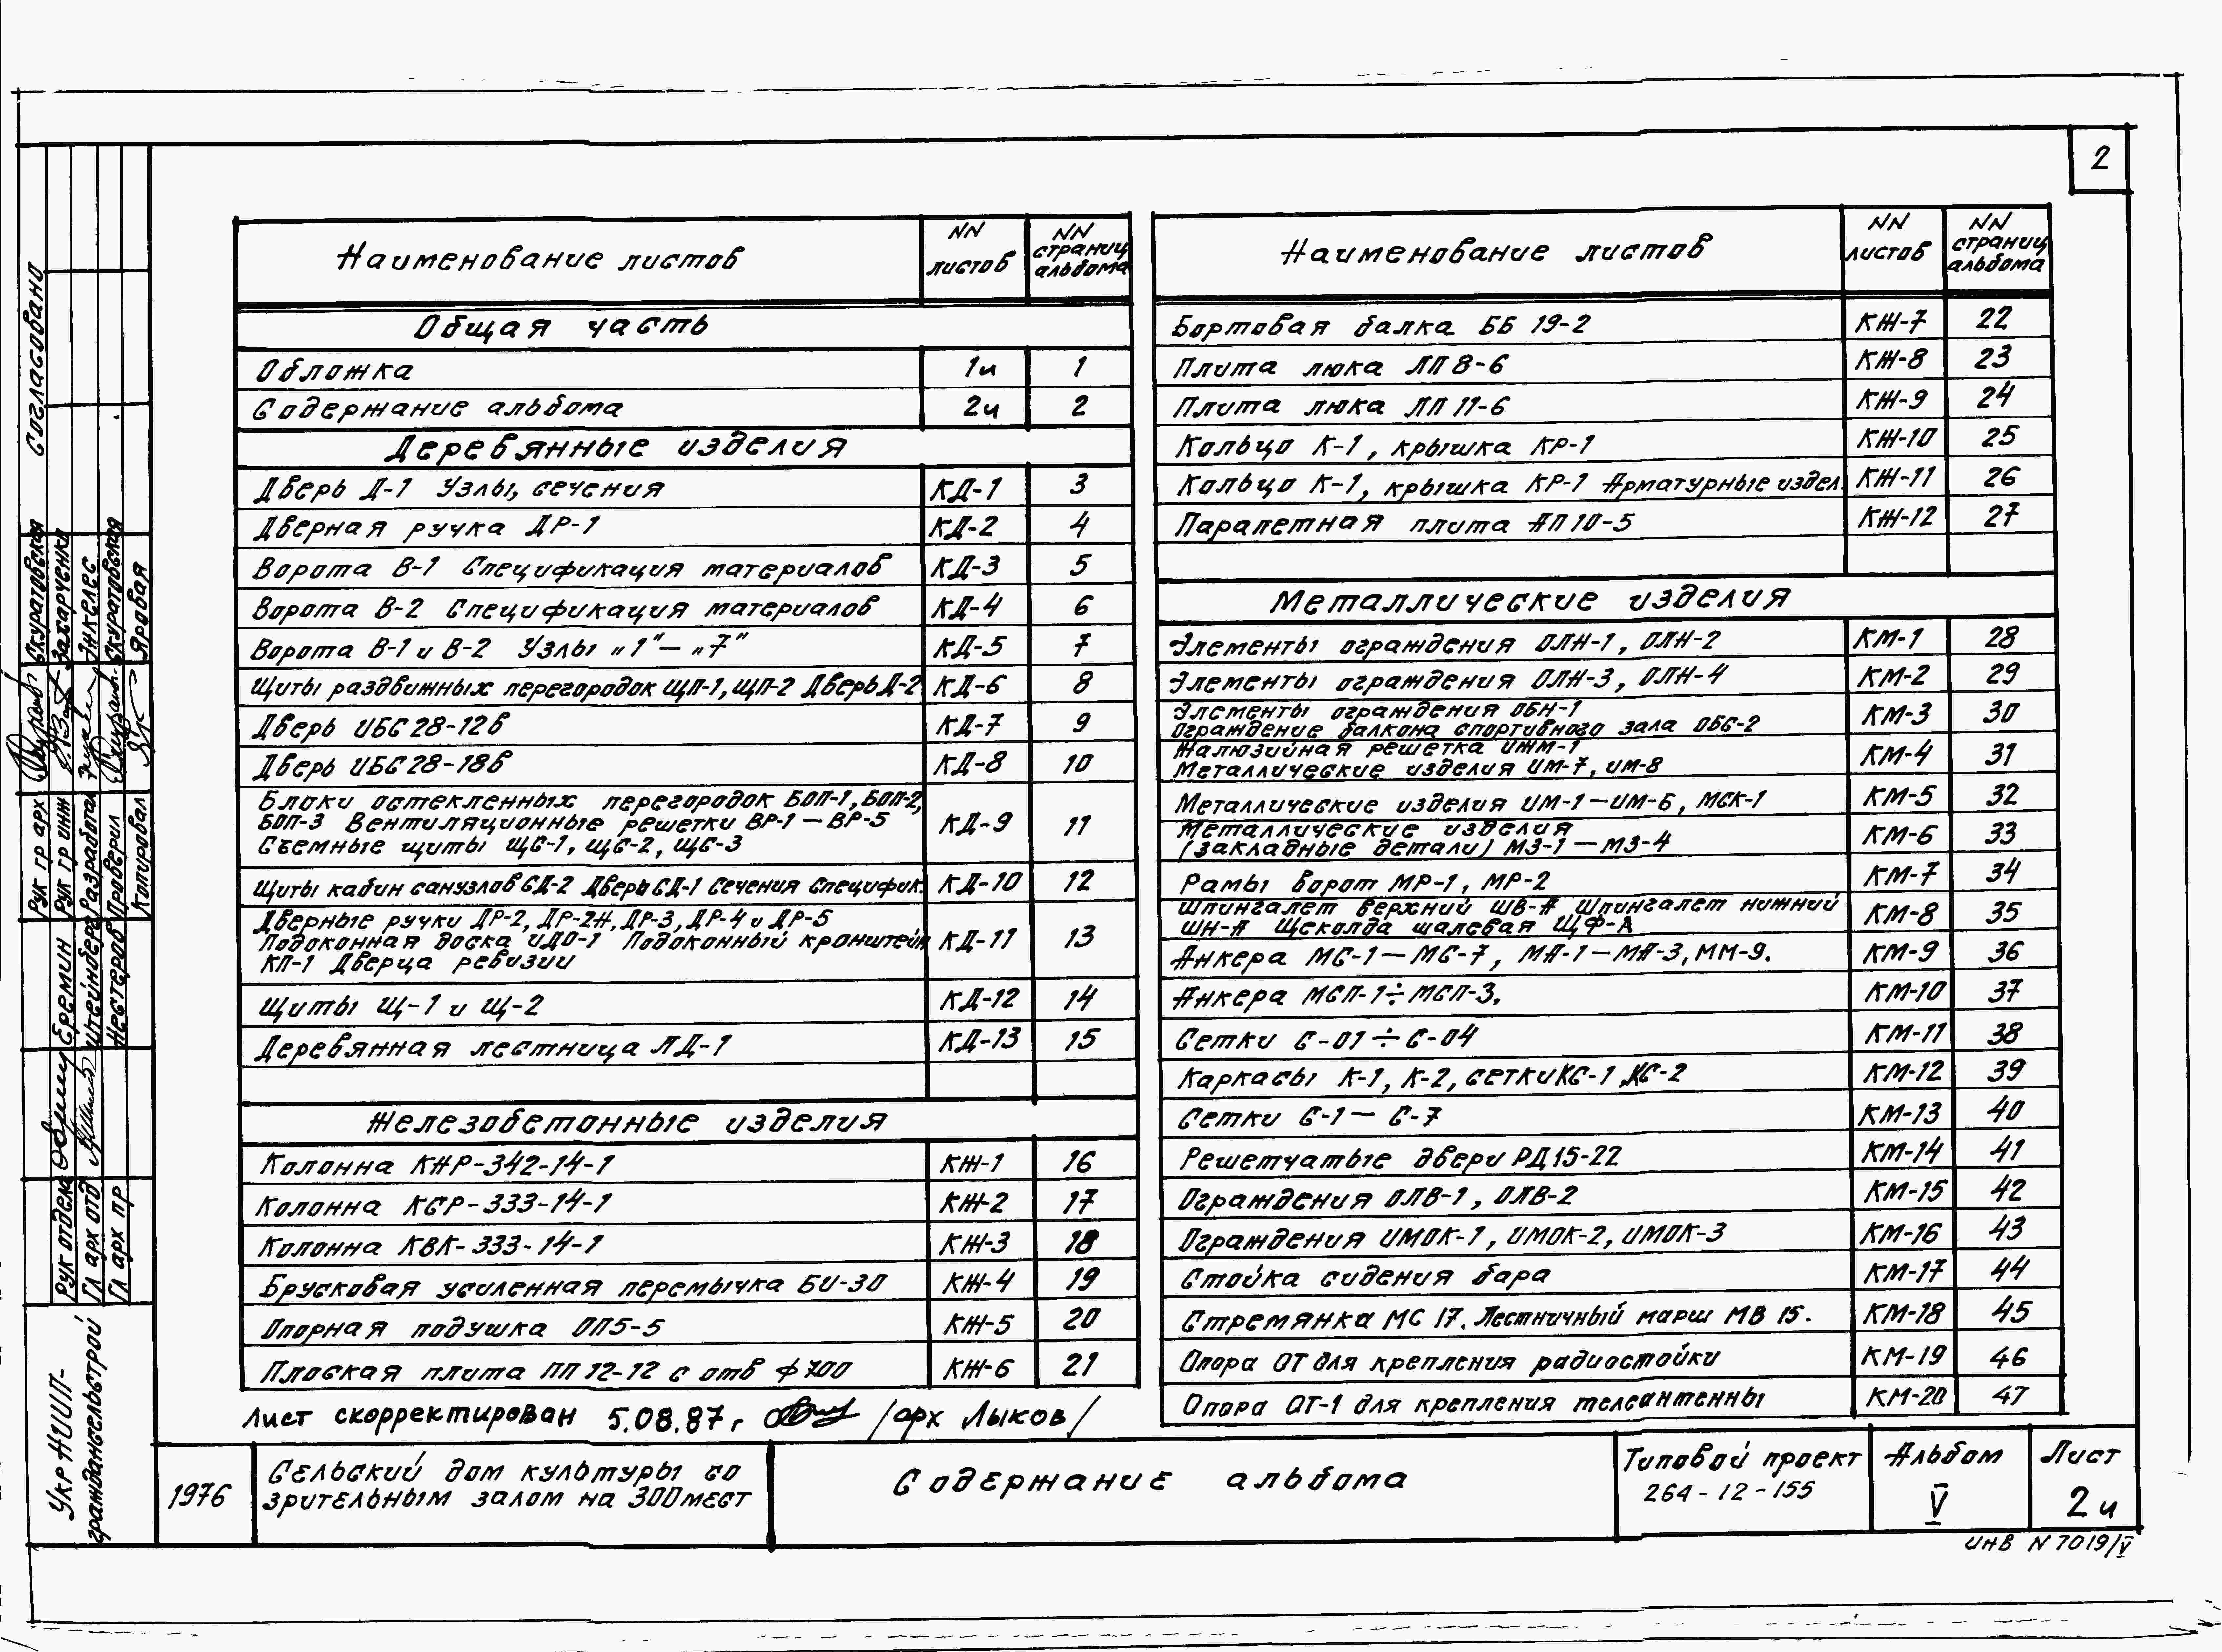 2
Наименование листов
NN листов
NN страниц альбома
Общая часть
Обложка 1и 1
Содержание альбома 2и 2
Деревянные изделия
Дверь Д-1 Узлы, сечения КД-1 3
Дверная ручка ДР-1 КД-2 4
Ворота В-1 Спецификация материалов КД-3 5
Ворота В-2 Спецификация материалов КД-4 6
Ворота В-1 и В-2 Узлы „1"—„7" КД-5 7
Щиты раздвижных перегородок ЩП-1, ЩП-2 Дверь Д-2 КД-6 8
Дверь ИБС 28-12в КД-7 9
Дверь ИБС 28-18в КД-8 10
Блоки остекленных перегородок БОП-1, БОП-2,
БОП-3 Вентиляционные решетки ВР-1 — ВР-5 КД-9 11
Съемные щиты ЩС-1, ЩС-2, ЩС-3
Щиты кабин санузлов СД-2 Дверь СД-1 Сечения Специфик. КД-10 12
Дверные ручки ДР-2, ДР-2А, ДР-3, ДР-4 и ДР-5
Подоконная доска ИДО-1 Подоконный кронштейн КД-11 13
КП-1 Дверца ревизии
Щиты Щ-1 и Щ-2 КД-12 14
Деревянная лестница ЛД-1 КД-13 15
Железобетонные изделия
Колонна КНР-342-14-1 КЖ-1 16
Колонна КСР-333-14-1 КЖ-2 17
Колонна КВК-333-14-1 КЖ-3 18
Брусковая усиленная перемычка БИ-30 КЖ-4 19
Опорная подушка ОП5-5 КЖ-5 20
Плоская плита ПП 12-12 с отв ф 700 КЖ-6 21
Лист скорректирован 5.08.87г /арх Лыков/
Наименование листов
NN листов
NN страниц альбома
Бортовая балка ББ 19-2 КЖ-7 22
Плита люка ЛП 8-6 КЖ-8 23
Плита люка ЛП 11-6 КЖ-9 24
Кольцо К-1, крышка КР-1 КЖ-10 25
Кольцо К-1, крышка КР-1 Арматурные издел. КЖ-11 26
Парапетная плита АП 10-5 КЖ-12 27
Металлические изделия
Элементы ограждения ОЛН-1, ОЛН-2 КМ-1 28
Элементы ограждения ОЛН-3, ОЛН-4 КМ-2 29
Элементы ограждения ОБН-1
Ограждение балкона спортивного зала ОБС-2 КМ-3 30
Жалюзийная решетка ИЖМ-1
Металлические изделия ИМ-7, ИМ-8 КМ-4 31
Металлические изделия ИМ-1 — ИМ-6, МСК-1 КМ-5 32
Металлические изделия
(закладные детали) МЗ-1 — МЗ-4 КМ-6 33
Рамы ворот МР-1, МР-2 КМ-7 34
Шпингалет верхний ШВ-А Шпингалет нижний
ШН-А Щеколда шалевая ЩФ-А КМ-8 35
Анкера МС-1 — МС-7, МА-1 — МА-3, ММ-9. КМ-9 36
Анкера МСП-1÷МСП-3. КМ-10 37
Сетки С-01 ÷ С-04 КМ-11 38
Каркасы К-1, К-2, сетки КС-1, КС-2 КМ-12 39
Сетки С-1 — С-7 КМ-13 40
Решетчатые двери РД 15-22 КМ-14 41
Ограждения ОЛВ-1, ОЛВ-2 КМ-15 42
Ограждения ИМОК-1, ИМОК-2, ИМОК-3 КМ-16 43
Стойка сидения бара КМ-17 44
Стремянка МС 17. Лестничный марш МВ 15. КМ-18 45
Опора ОТ для крепления радиостойки КМ-19 46
Опора ОТ-1 для крепления телеантенны КМ-20 47
Согласовано
Рук гр арх Скуратовская
Рук гр инж Захарченко
Разработал Инкелес
Проверил Скуратовская
Копировал Яровая
Рук отдела Еремин
Гл арх отд Штейнберг
Гл арх пр Нестеров
УкрНИИП-
граждансельстрой
1976
Сельский дом культуры со
зрительным залом на 300 мест
Содержание альбома
Типовой проект
264-12-155
Альбом
V
Лист
2и
инв N 7019/V